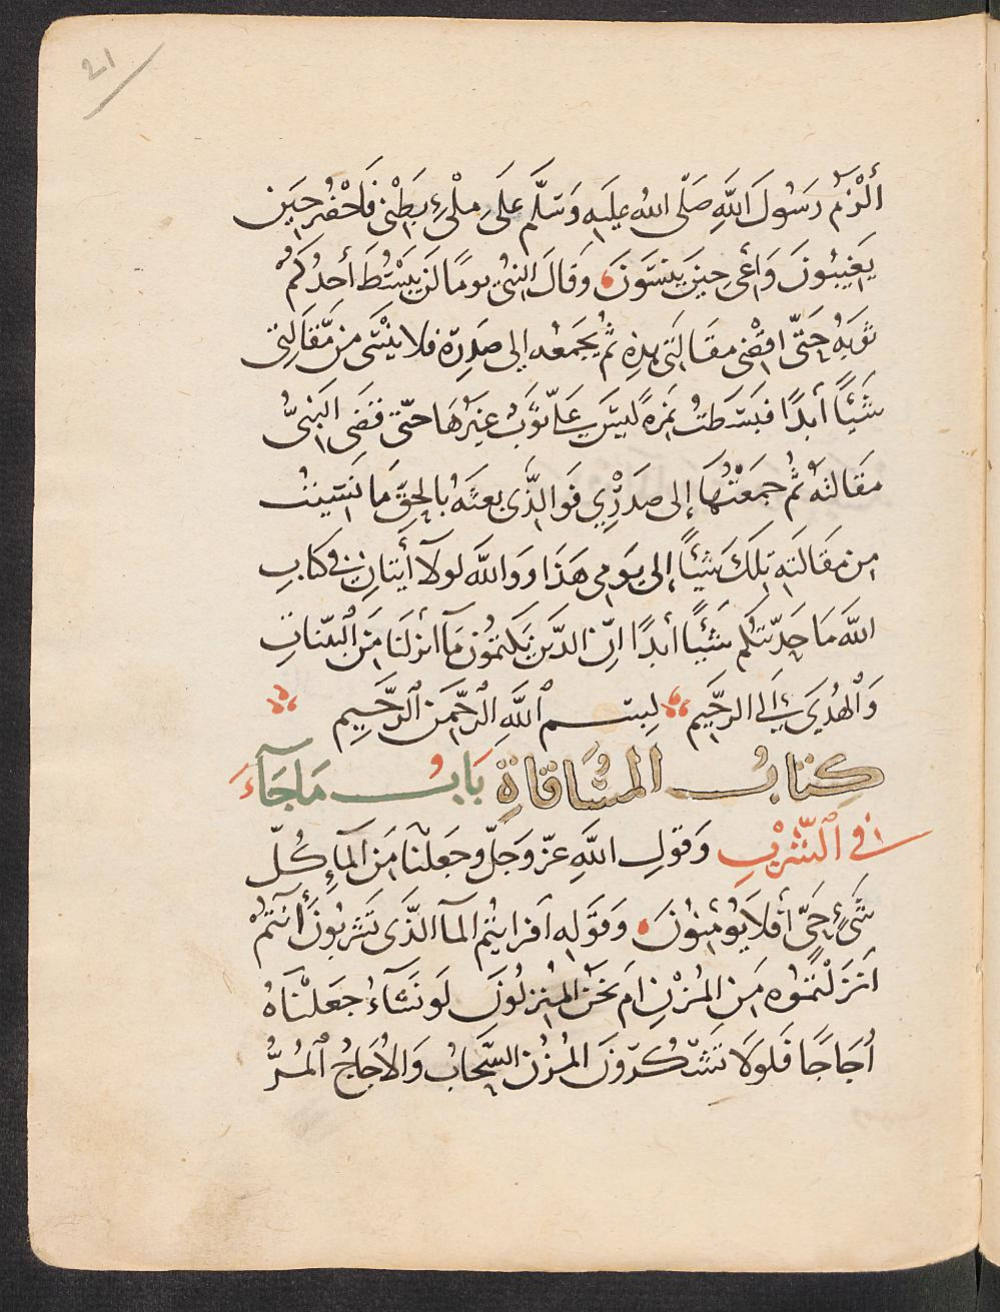 21
أَلْزَمُ رَسُولَ اللَّهِ صَلَّى اللَّهُ عَلَيْهِ وَسَلَّمَ عَلَى مِلْءِ بَطْنِي فَأَحْضُرُ حِينَ
يَغِيبُونَ وَأَعِي حِينَ يَنْسَوْنَ وَقَالَ النَّبِيُّ يَوْمًا لَنْ يَبْسُطَ أَحَدُكُمْ
ثَوْبَهُ حَتَّى اقْضِيَ مَقَالَتِي هَذِهِ ثُمَّ يَجْمَعُهُ إِلَى صَدْرِهِ فَلَا يَنْسَى مِنْ مَقَالَتِي
شَيْئًا أَبَدًا فَبَسَطْتُ نَمِرَةً لَيْسَ عَلَيَّ ثَوْبٌ غَيْرُهَا حَتَّى قَضَى النَّبِيُّ
مَقَالَتَهُ ثُمَّ جَمَعْتُهَا إِلَى صَدْرِي فَوَالَّذِي بَعَثَهُ بِالْحَقِّ مَا نَسِيتُ
مِنْ مَقَالَتِهِ تِلْكَ شَيْئًا إِلَى يَوْمِي هَذَا وَوَاللَّهِ لَوْلَا آيَتَانِ فِي كِتَابِ
اللَّهِ مَا حَدَّثْتُكُمْ شَيْئًا أَبَدًا إِنَّ الَّذِينَ يَكْتُمُونَ مَا أَنْزَلْنَا مِنَ الْبَيِّنَاتِ
وَالْهُدَى إِلَى الرَّحِيمِ لِبِسْمِ اللَّهِ الرَّحْمَنِ الرَّحِيمِ
كِتَابُ الْمُسَاقَاةِ بَابُ مَا جَآءَ
فِي الشُّرْبِ وَقَوْلِ اللَّهِ عَزَّ وَجَلَّ وَجَعَلْنَا مِنَ الْمَآءِ كُلَّ
شَيْءٍ حَيٍّ أَفَلَا يُؤْمِنُونَ وَقَوْلِهِ أَفَرَأَيْتُمُ الْمَآ الَّذِي تَشْرَبُونَ أَأَنْتُمْ
أَنْزَلْتُمُوهُ مِنَ الْمُزْنِ أَمْ نَحْنُ الْمُنْزِلُونَ لَوْ نَشَآءُ جَعَلْنَاهُ
أُجَاجًا فَلَوْلَا تَشْكُرُونَ الْمُزْنُ السَّحَابُ وَالْأُجَاجُ الْمُرُّ